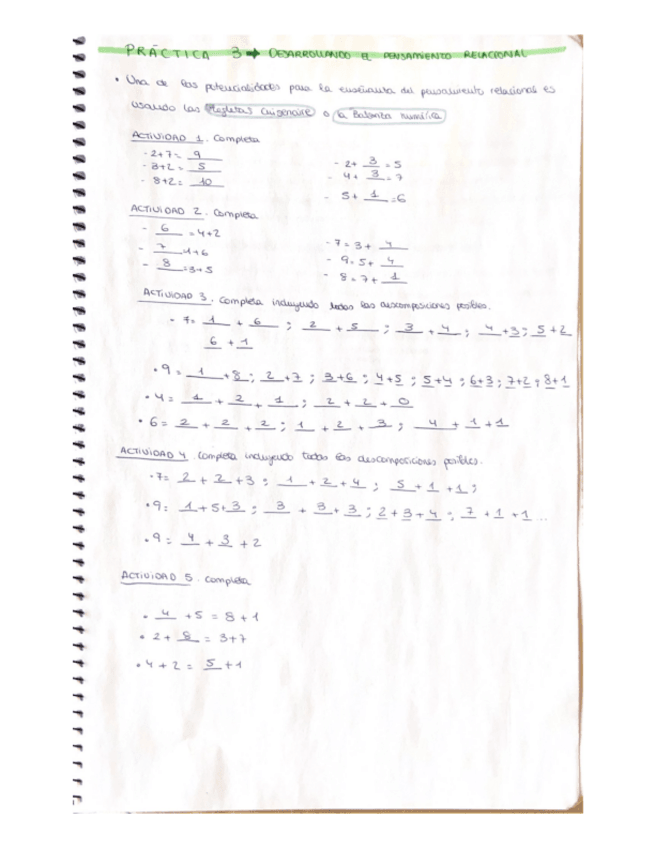 PRÁCTICA 3 → DESARROLLANDO EL PENSAMIENTO RELACIONAL
• Una de las potencialidades para la enseñanza del pensamiento relacional es
usando las Regletas Cuisenaire o la Balanza numérica
ACTIVIDAD 1. Completa
- 2+7= 9
- 3+2= 5
- 8+2= 10
- 2+ 3 =5
- 4+ 3 =7
- 5+ 1 =6
ACTIVIDAD 2. Completa
- 6 =4+2
- 7 =1+6
- 8 =3+5
- 7=3+ 4
- 9=5+ 4
- 8=7+ 1
ACTIVIDAD 3. Completa incluyendo todas las descomposiciones posibles.
- 7= 1 + 6 ; 2 + 5 ; 3 + 4 ; 4+3; 5+2
6 + 1
• 9= 1 +8; 2+7; 3+6; 4+5; 5+4; 6+3; 7+2; 8+1
• 4= 1 + 2 + 1 ; 2 + 2 + 0
• 6= 2 + 2 + 2 ; 1 + 2 + 3 ; 4 + 1 + 1
ACTIVIDAD 4. Completa incluyendo todas las descomposiciones posibles.
• 7= 2 + 2 +3 ; 1 + 2 + 4 ; 5 + 1 + 1 ;
• 9= 1+5+3 ; 3 + 3 + 3 ; 2+3+4 ; 7 +1 +1 ...
• 9= 4 + 3 + 2
ACTIVIDAD 5. Completa
• 4 +5 = 8+1
• 2+ 8 = 3+7
• 4+2 = 5 +1